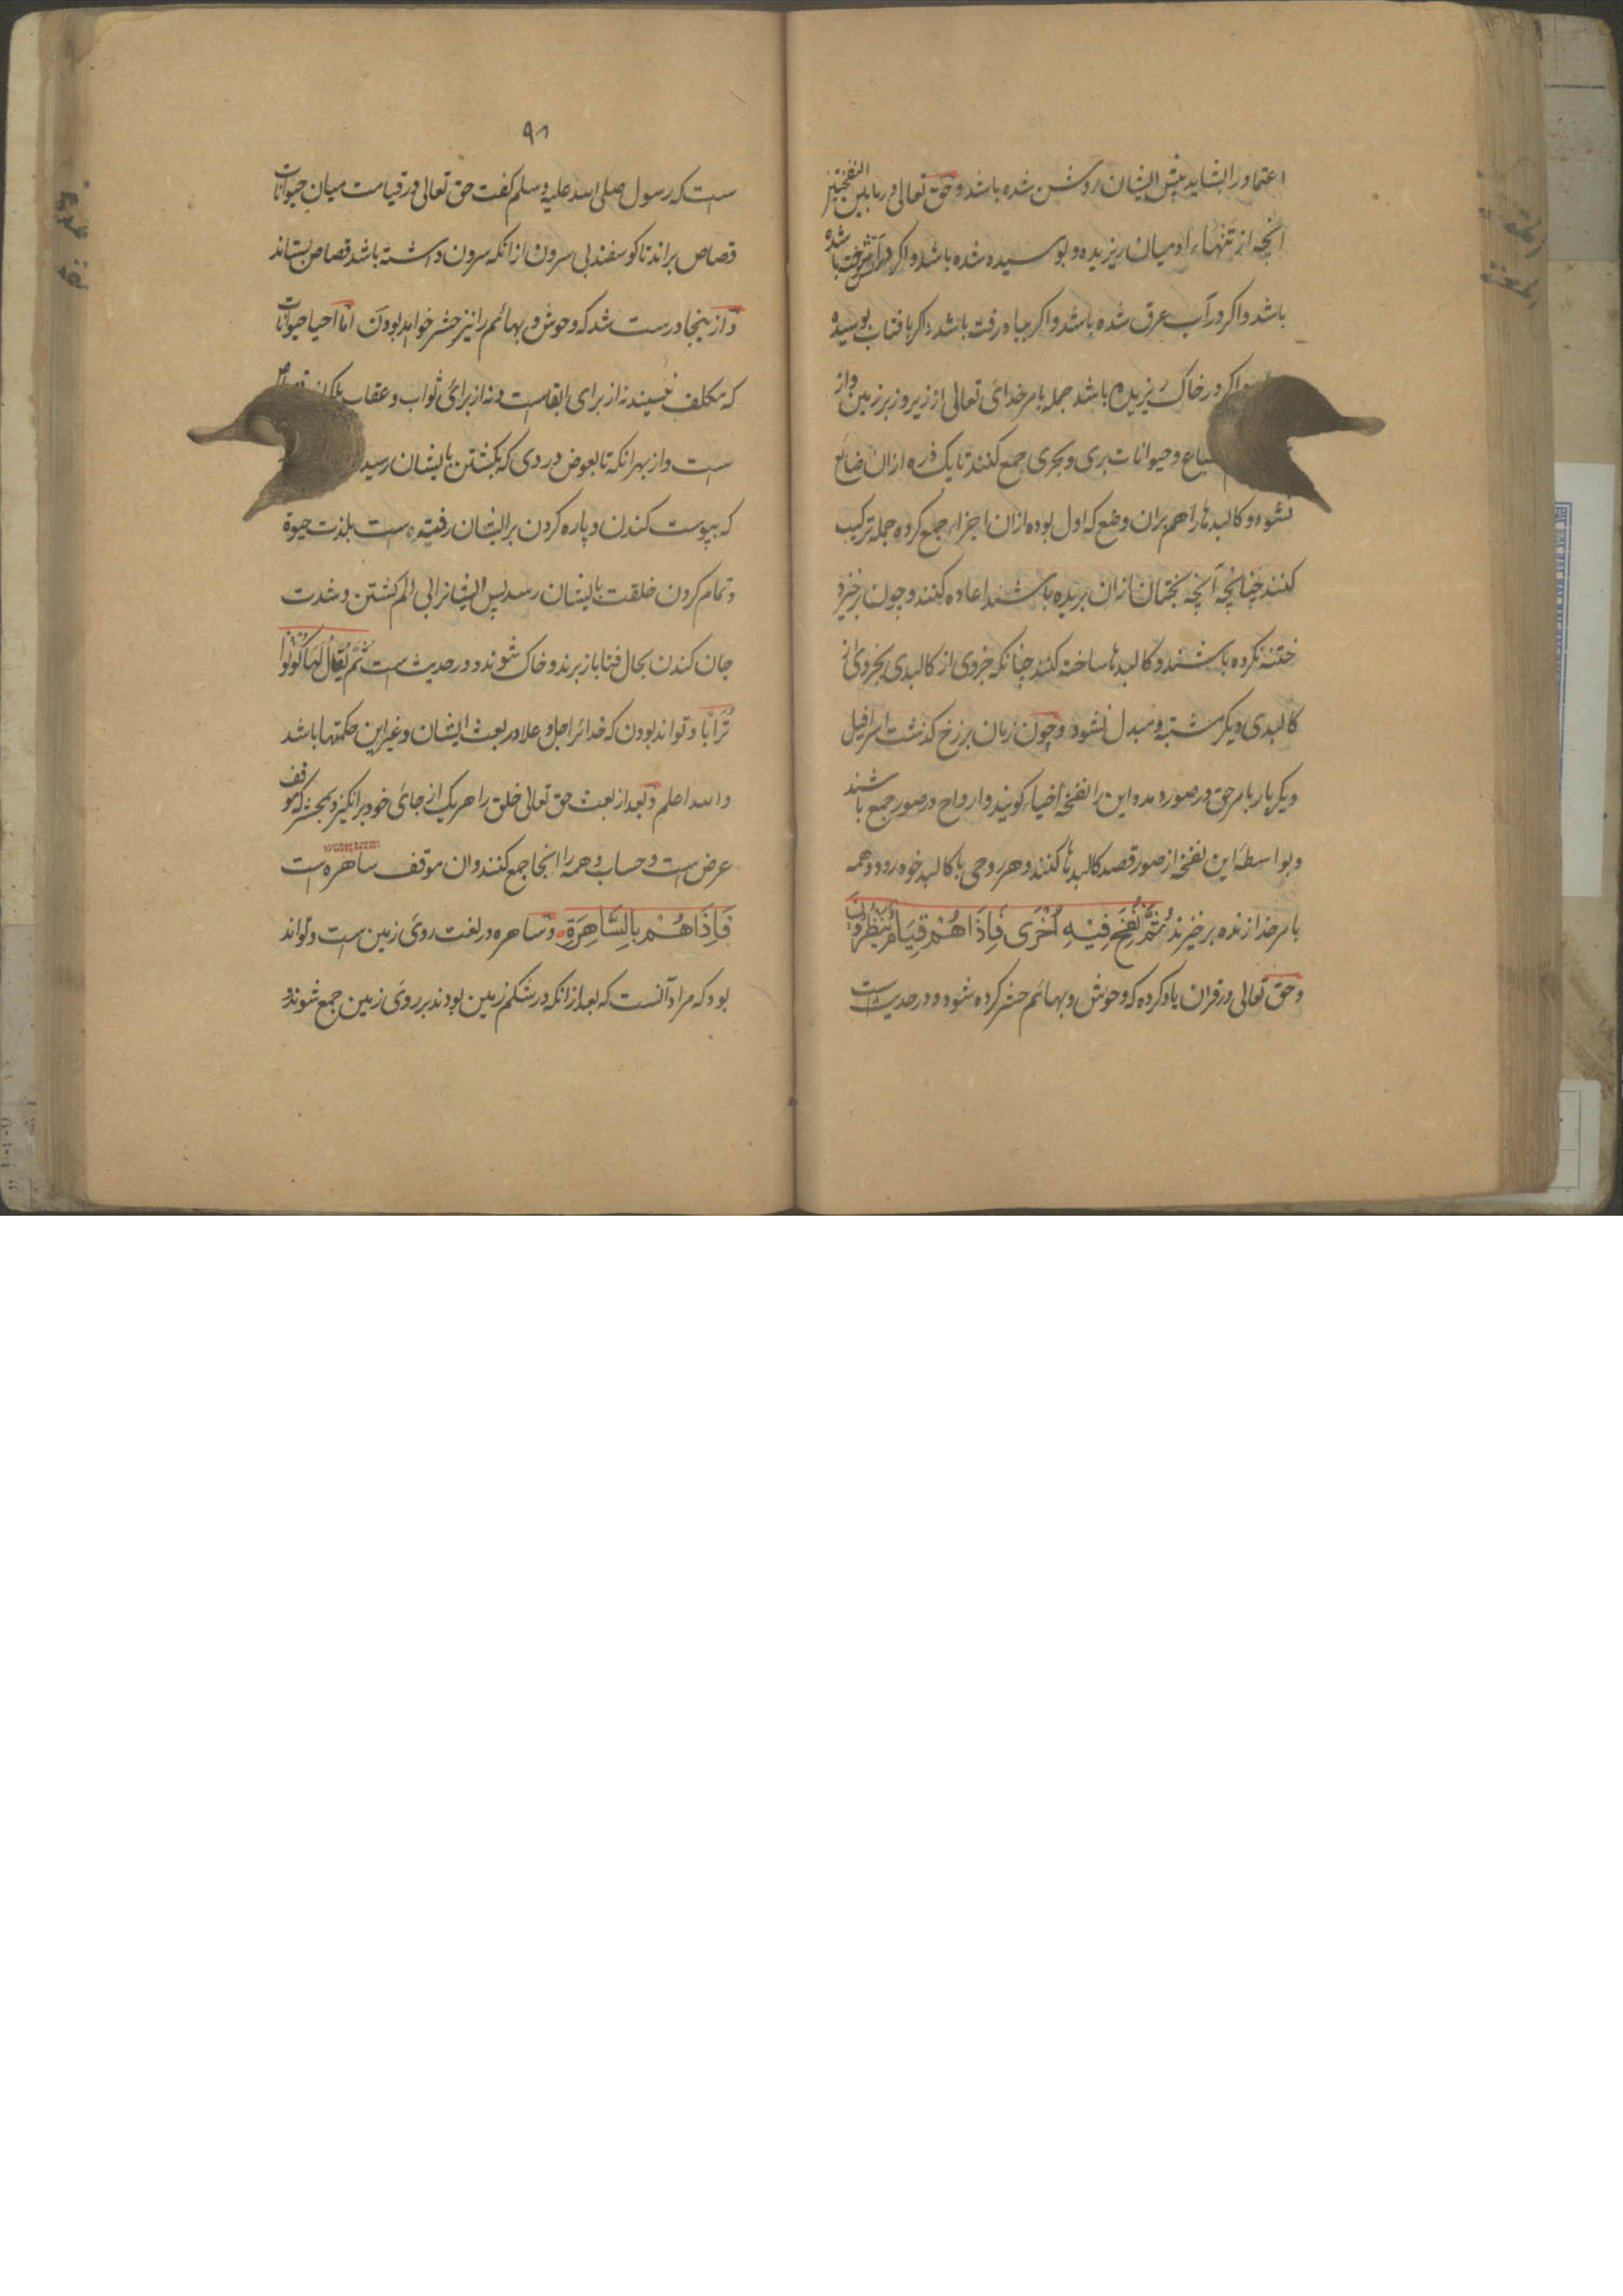 اعتماد را نشاید پیش ایشان روشن شده باشد و حق تعالی در ما بین النفختین
انچه از تنهاء ادمیان ریزیده و بوسیده شده باشد و اکر در آتش سوخت شده باشد
باشد و اکر در آب غرق شده باشد و اکر بباد رفت باشد و اکر بافتاب بوسیده
واکر در خاک ریزیده باشد جمله بامر خدای تعالی از زیر و زبر زمین و از
سباع و حیوانات بری و بحری جمع کنند تا یک ذره ازان ضایع
نشود و کالبدها را هم بران وضع که اول بوده ازان اجزاء جمع کرده جمله ترکیب
کنند چنانچه آنچه بختان ازان بریده باشند اعاده کنند و چون برخیزد
ختنه نکرده باشند و کالبدها ساخته کنند چنانکه جزوی از کالبدی بجزوی از
کالبدی دیکر مشتبه و مبدل نشود و چون زمان برزخ کذشت اسرافیل
دیکر بار بامر حق در صور دمد و این را نفخهٔ احیاء کویند و ارواح در صور جمع باشند
و بواسطهٔ این نفخه از صور قصد کالبدها کنند و هر روحی با کالبد خود رود و همه
بامر خدا زنده برخیزند ثُمَّ نُفِخَ فِیْهِ اُخْرَی فَاِذَا هُمْ قِیَامٌ یَنْظُرُونَ
و حق تعالی در قران یاد کرده که وحوش و بهائم حشر کرده شود و در حدیث است
۹۸
ست که رسول صلی الله علیه وسلم کفت حق تعالی در قیامت میان حیوانات
قصاص براند تا کوسفند بی سرون ازانکه سرون داشته باشد قصاص بستاند
و از ینجا درست شد که وحوش و بهائم را نیز حشر خواهد بودن اما احیا حیوانات
که مکلف نیسیند نه از برای ابقاست و نه از برای ثواب و عقاب بلکه از
ست و از بهر انکه تا بعوض دردی که بکشتن بایشان رسید
که پوست کندن و پاره کردن بر ایشان رفیته است بلذت حیوة
و تمام کردن خلقت بایشان رسد پس ایشانرا بی الم کشتن و شدت
جان کندن بحال فنا باز برند و خاک شوند و در حدیث است ثُمَّ یُقَالُ لَهَا کُوْنُوْا
تُرَابًا و تواند بودن که خدائرا جل و علا در بعث ایشان و غیر این حکمتها باشد
والله اعلم و بعد از بعث حق تعالی خلق را هریک از جای خود برانکیزد بمحشر که موقف
عرض ست و حساب و همه را انجا جمع کنند و ان موقف ساهره است
فَاِذَا هُمْ بِالسَّاهِرَةِ و ساهره در لغت روی زمین ست و تواند
بود که مراد آنست که بعد ازانکه در شکم زمین بودند بر روی زمین جمع شوند و